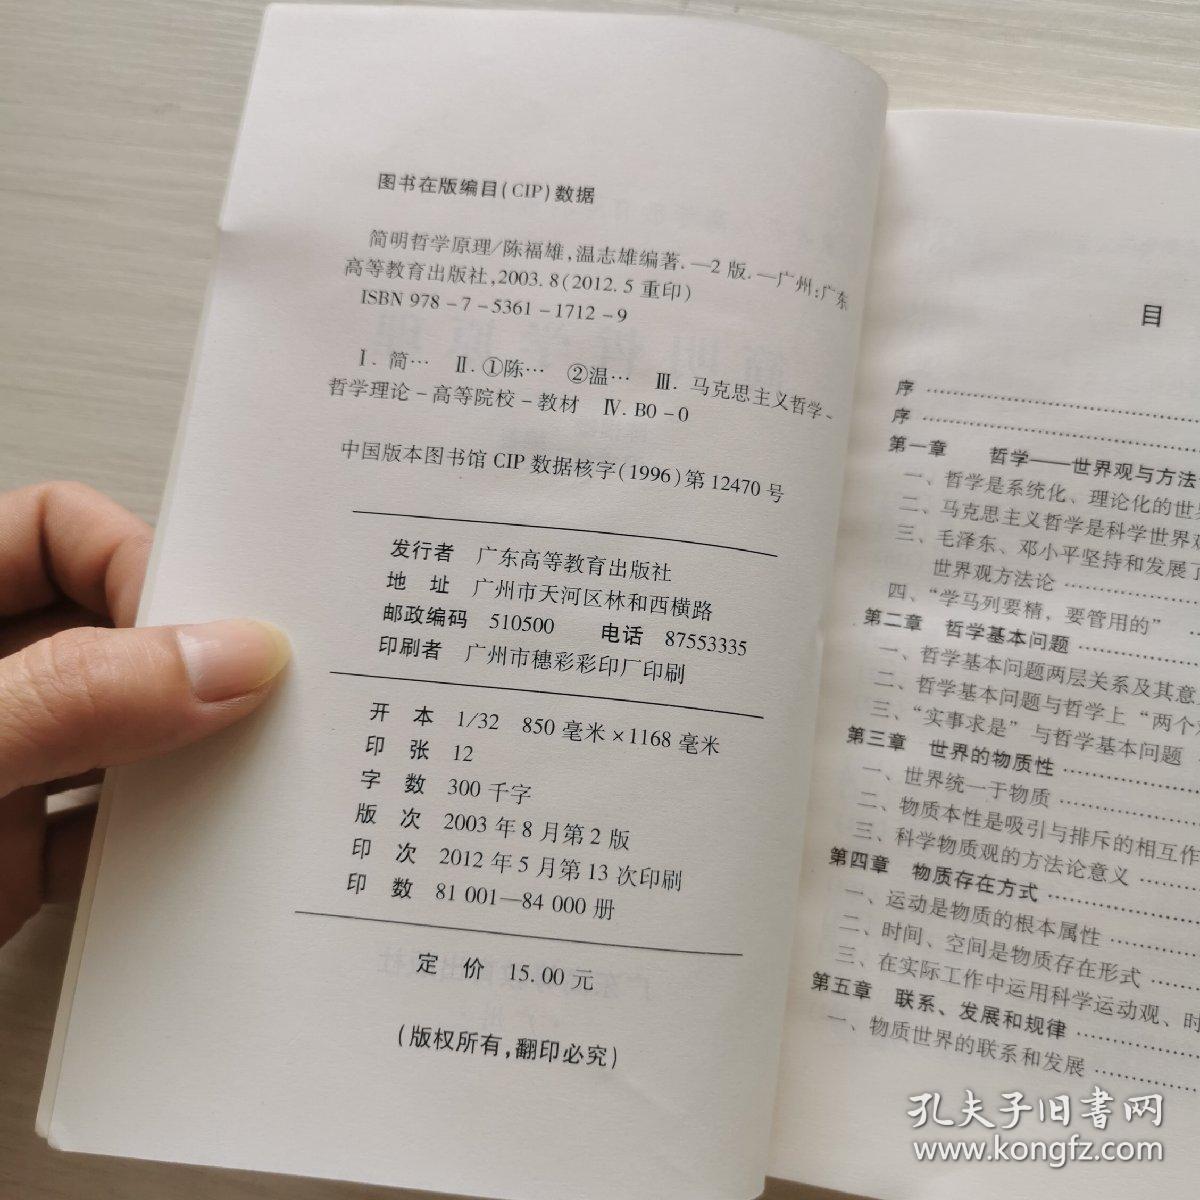 图书在版编目(CIP)数据
简明哲学原理/陈福雄,温志雄编著.—2版.—广州:广东
高等教育出版社,2003.8(2012.5重印)
ISBN 978-7-5361-1712-9
Ⅰ.简… Ⅱ.①陈… ②温… Ⅲ.马克思主义哲学-
哲学理论-高等院校-教材 Ⅳ.B0-0
中国版本图书馆CIP数据核字(1996)第12470号
发行者 广东高等教育出版社
地 址 广州市天河区林和西横路
邮政编码 510500 电话 87553335
印刷者 广州市穗彩彩印厂印刷
开 本 1/32 850毫米×1168毫米
印 张 12
字 数 300千字
版 次 2003年8月第2版
印 次 2012年5月第13次印刷
印 数 81 001—84 000册
定 价 15.00元
(版权所有,翻印必究)
目
序 ……
序 ……
第一章 哲学——世界观与方法
一、哲学是系统化、理论化的世界
二、马克思主义哲学是科学世界观
三、毛泽东、邓小平坚持和发展了
世界观方法论 ……
四、“学马列要精，要管用的” …
第二章 哲学基本问题 ……
一、哲学基本问题两层关系及其意
二、哲学基本问题与哲学上“两个对
三、“实事求是”与哲学基本问题 …
第三章 世界的物质性 ……
一、世界统一于物质 ……
二、物质本性是吸引与排斥的相互作
三、科学物质观的方法论意义 ……
第四章 物质存在方式 ……
一、运动是物质的根本属性 ……
二、时间、空间是物质存在形式 ……
三、在实际工作中运用科学运动观、时
第五章 联系、发展和规律 ……
一、物质世界的联系和发展 ……
孔夫子旧书网
www.kongfz.com